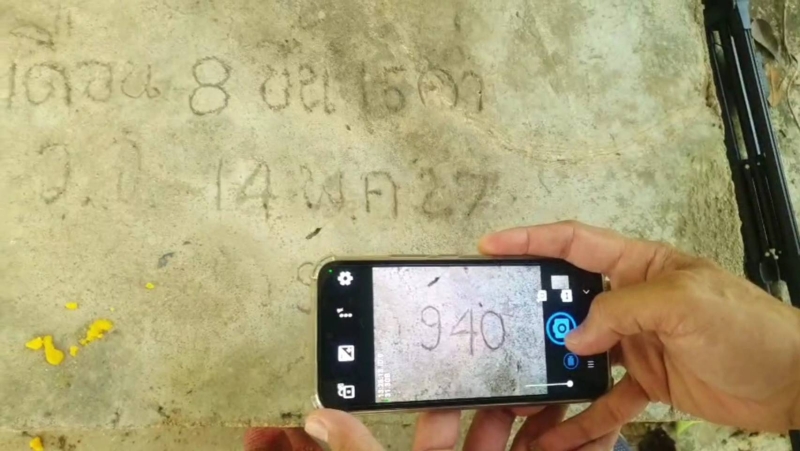 เดือน 8 ขึ้น 15 ค่ำ
ว.ด. 14 พ.ค 27
940